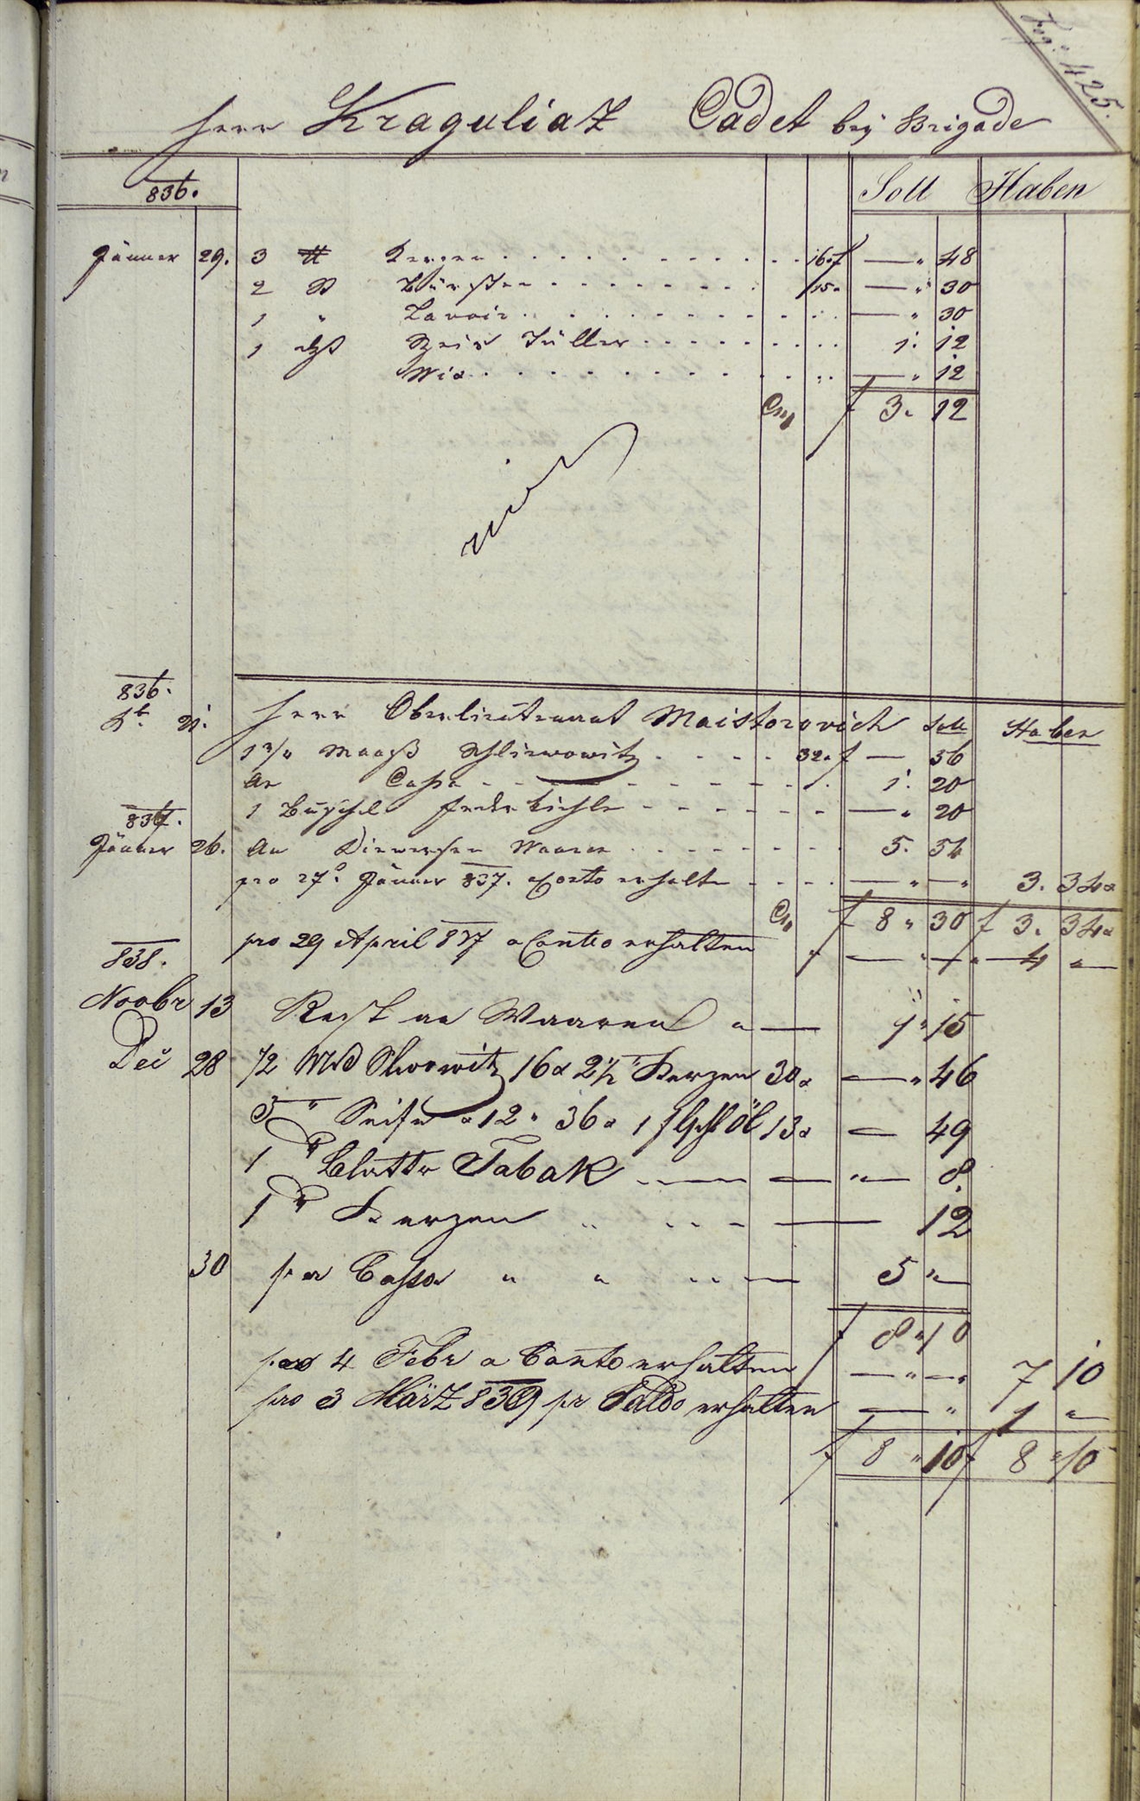 Fog: 425.
Herr Kraguliatz Cadet bey Brigade
836.
Soll Haben
Jänner 29. 3 ℔ Kerzen 16 f — " 48
2 St Bürsten 15 " — " 30
1 " Lavoir — " 30
1 dzt Speis Täller 1. 12
Wix — " 12
CM f 3. 12
836.
Herr Oberlieutenant Maistorovich Soll Haben
21. 1 3/4 Maaß Schliwowitz 32 " f — 56
An Cassa 1. 20
1 Büschl Feder Kiehle — " 20
837.
Jänner 26. An Diewersen Waaren 5. 54
pro 27. Jänner 837. a Conto erhalten — " — " 3. 34
CM f 8 " 30 f 3. 34
pro 29 April 837 a Conto erhalten — " — " 4 " —
838.
Novbr 13 Rest an Waaren " — 1 " 15
Dec 28 1/2 Slivowitz 16 x 2 1/2 " Kerzen 30 x — " 46
3 " Seife a 12 " 36 x 1 Öl 13 x — 49
1 " Blatter Tabak — " — 8.
1 " Kerzen — 12
30 pr Cassa " " — 5 " —
f 8 " 10
pro 4 Febr a Conto erhalten — " — " 7 10
pro 3 März 839 pr Saldo erhalten — " 1 " —
f 8 " 10 f 8 " 10